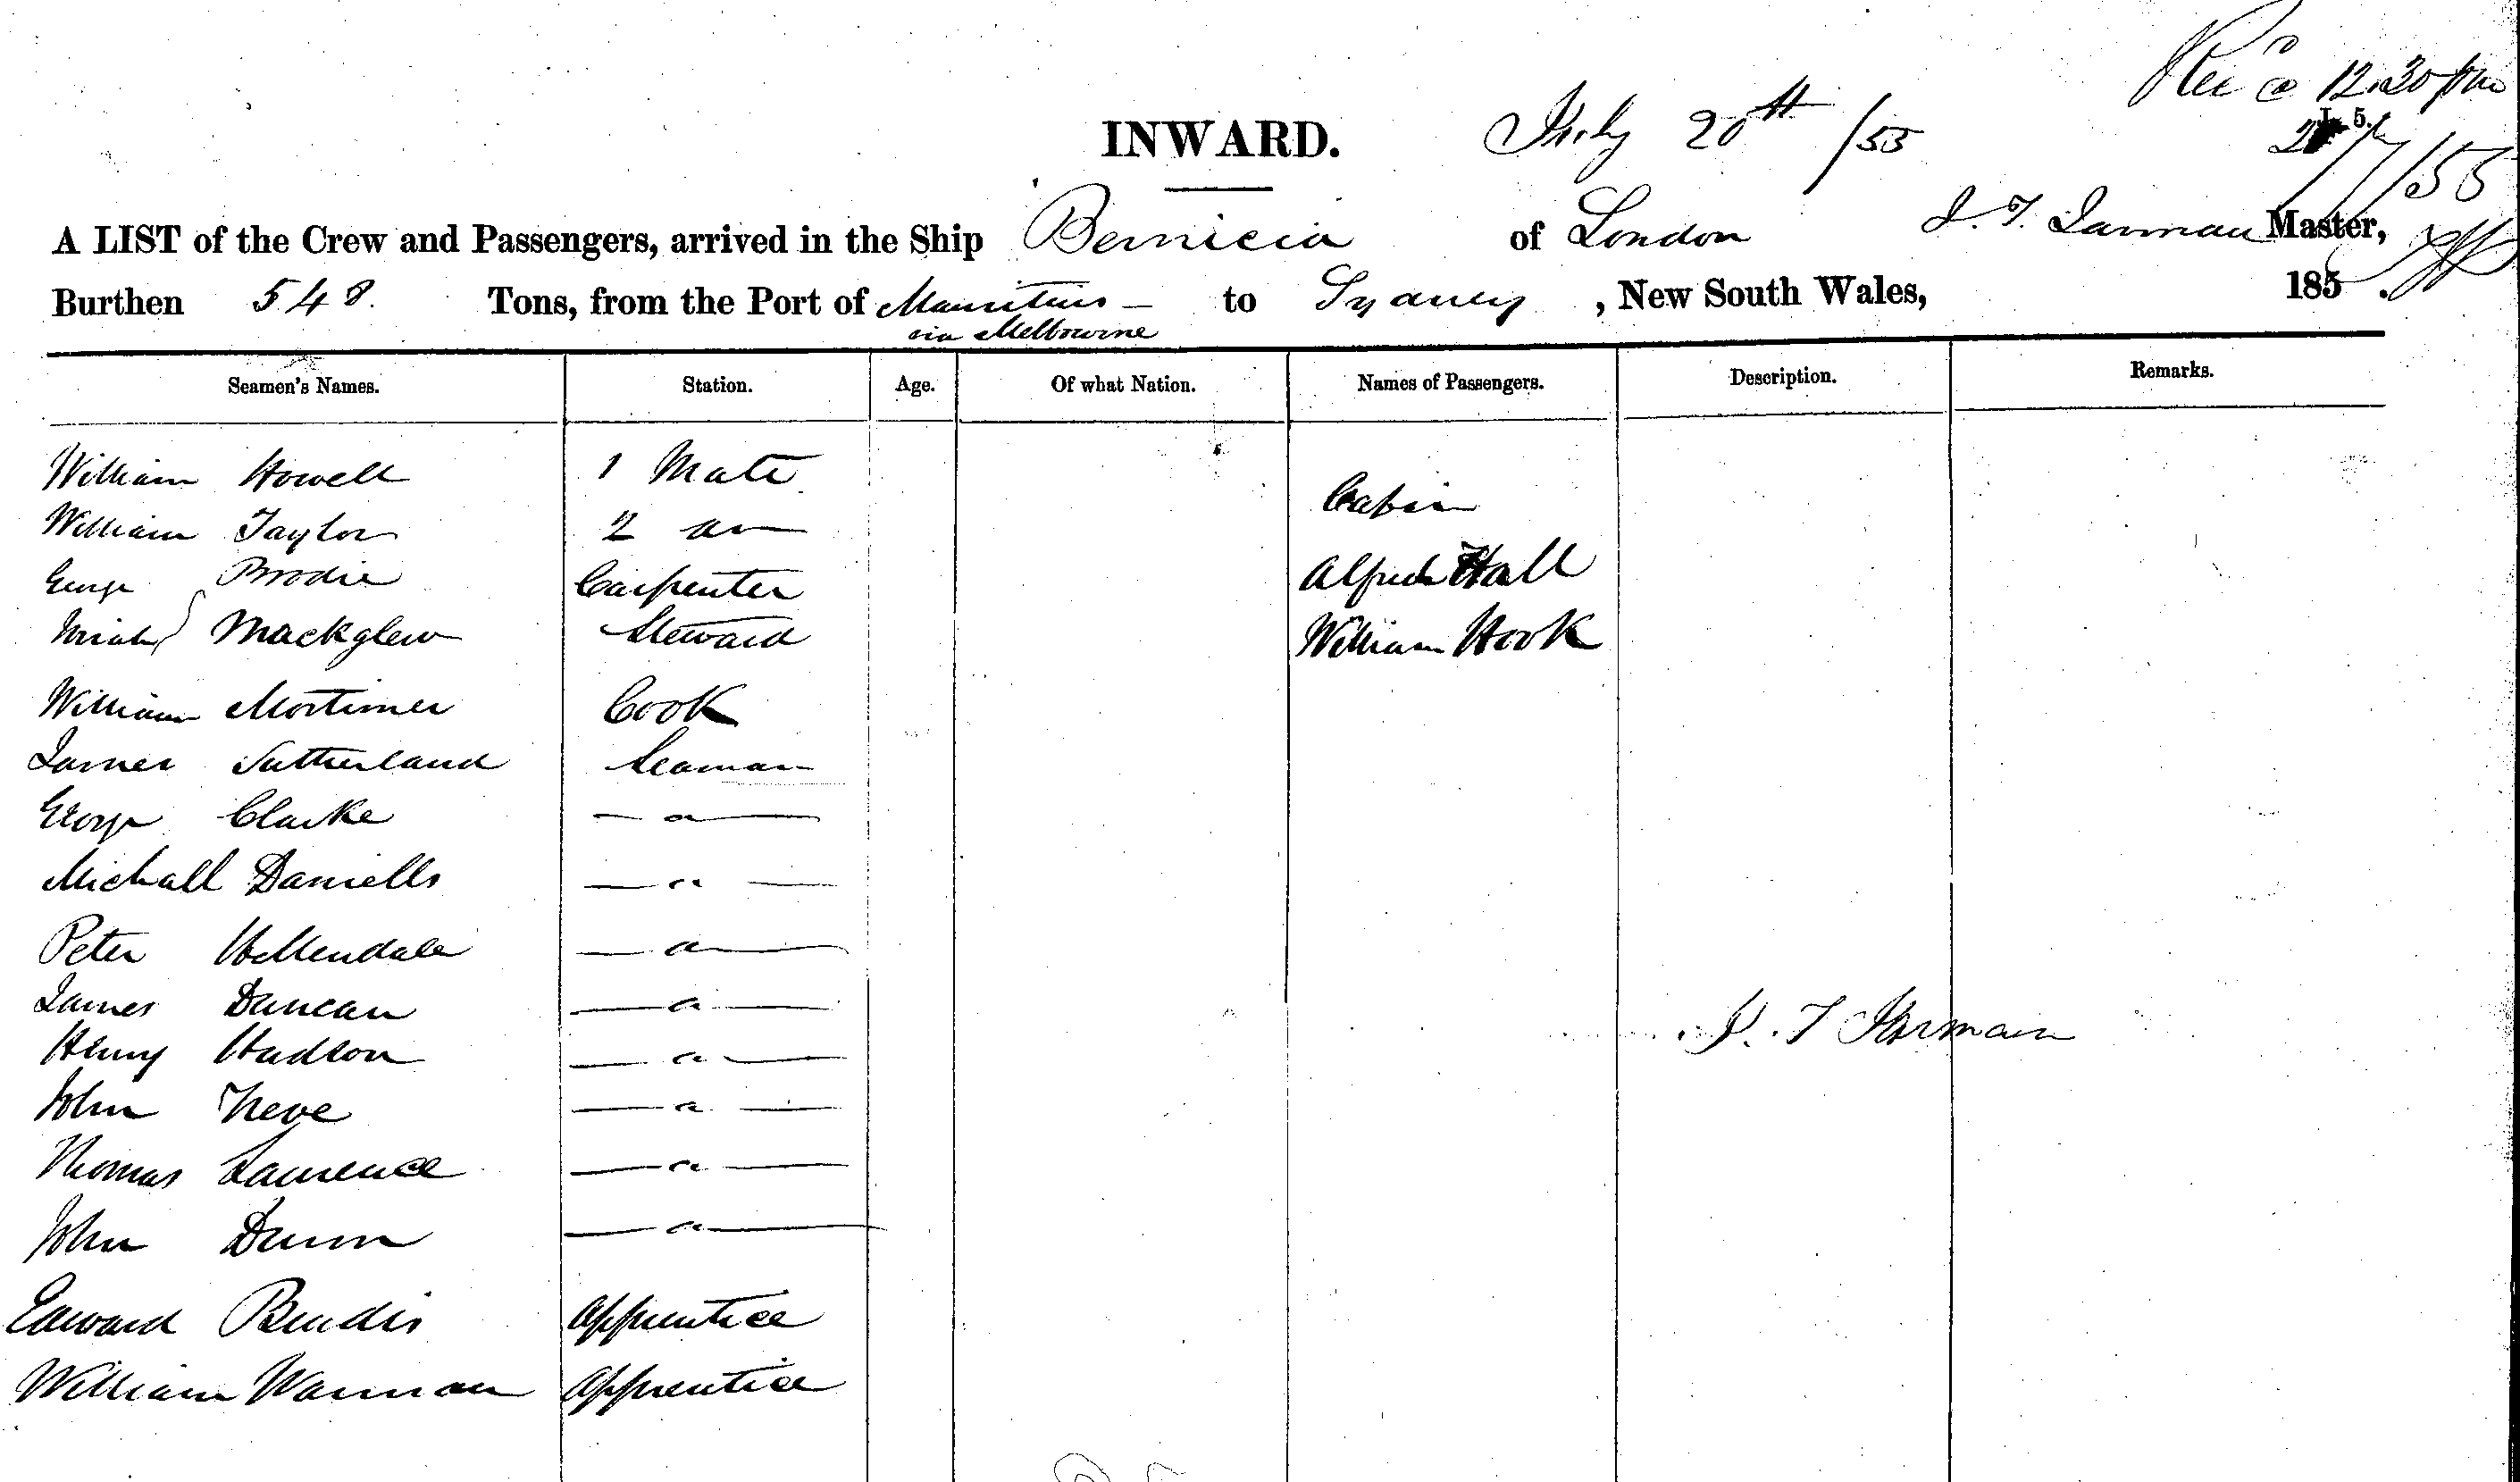 Rec @ 12.30 pm
INWARD. July 20th /55
/7/55
A LIST of the Crew and Passengers, arrived in the Ship Bernicia of London J. T. Jarman Master,
Burthen 548. Tons, from the Port of Mauritius — to Sydney , New South Wales, 185 .
via Melbourne
Seamen's Names. Station. Age. Of what Nation. Names of Passengers. Description. Remarks.
William Howell 1 Mate
Cabin
William Taylor 2
George Brodie Carpenter Alfred Hall
Mackglew Steward William Hook
William Mortimer Cook
James Sutherland Seaman
George Clarke
Michall Daniells
Peter
James Duncan
J. T Jarman
Henry Hudson
John Neve
Thomas Laurence
John Dunn
Edward Apprentice
William Warman Apprentice